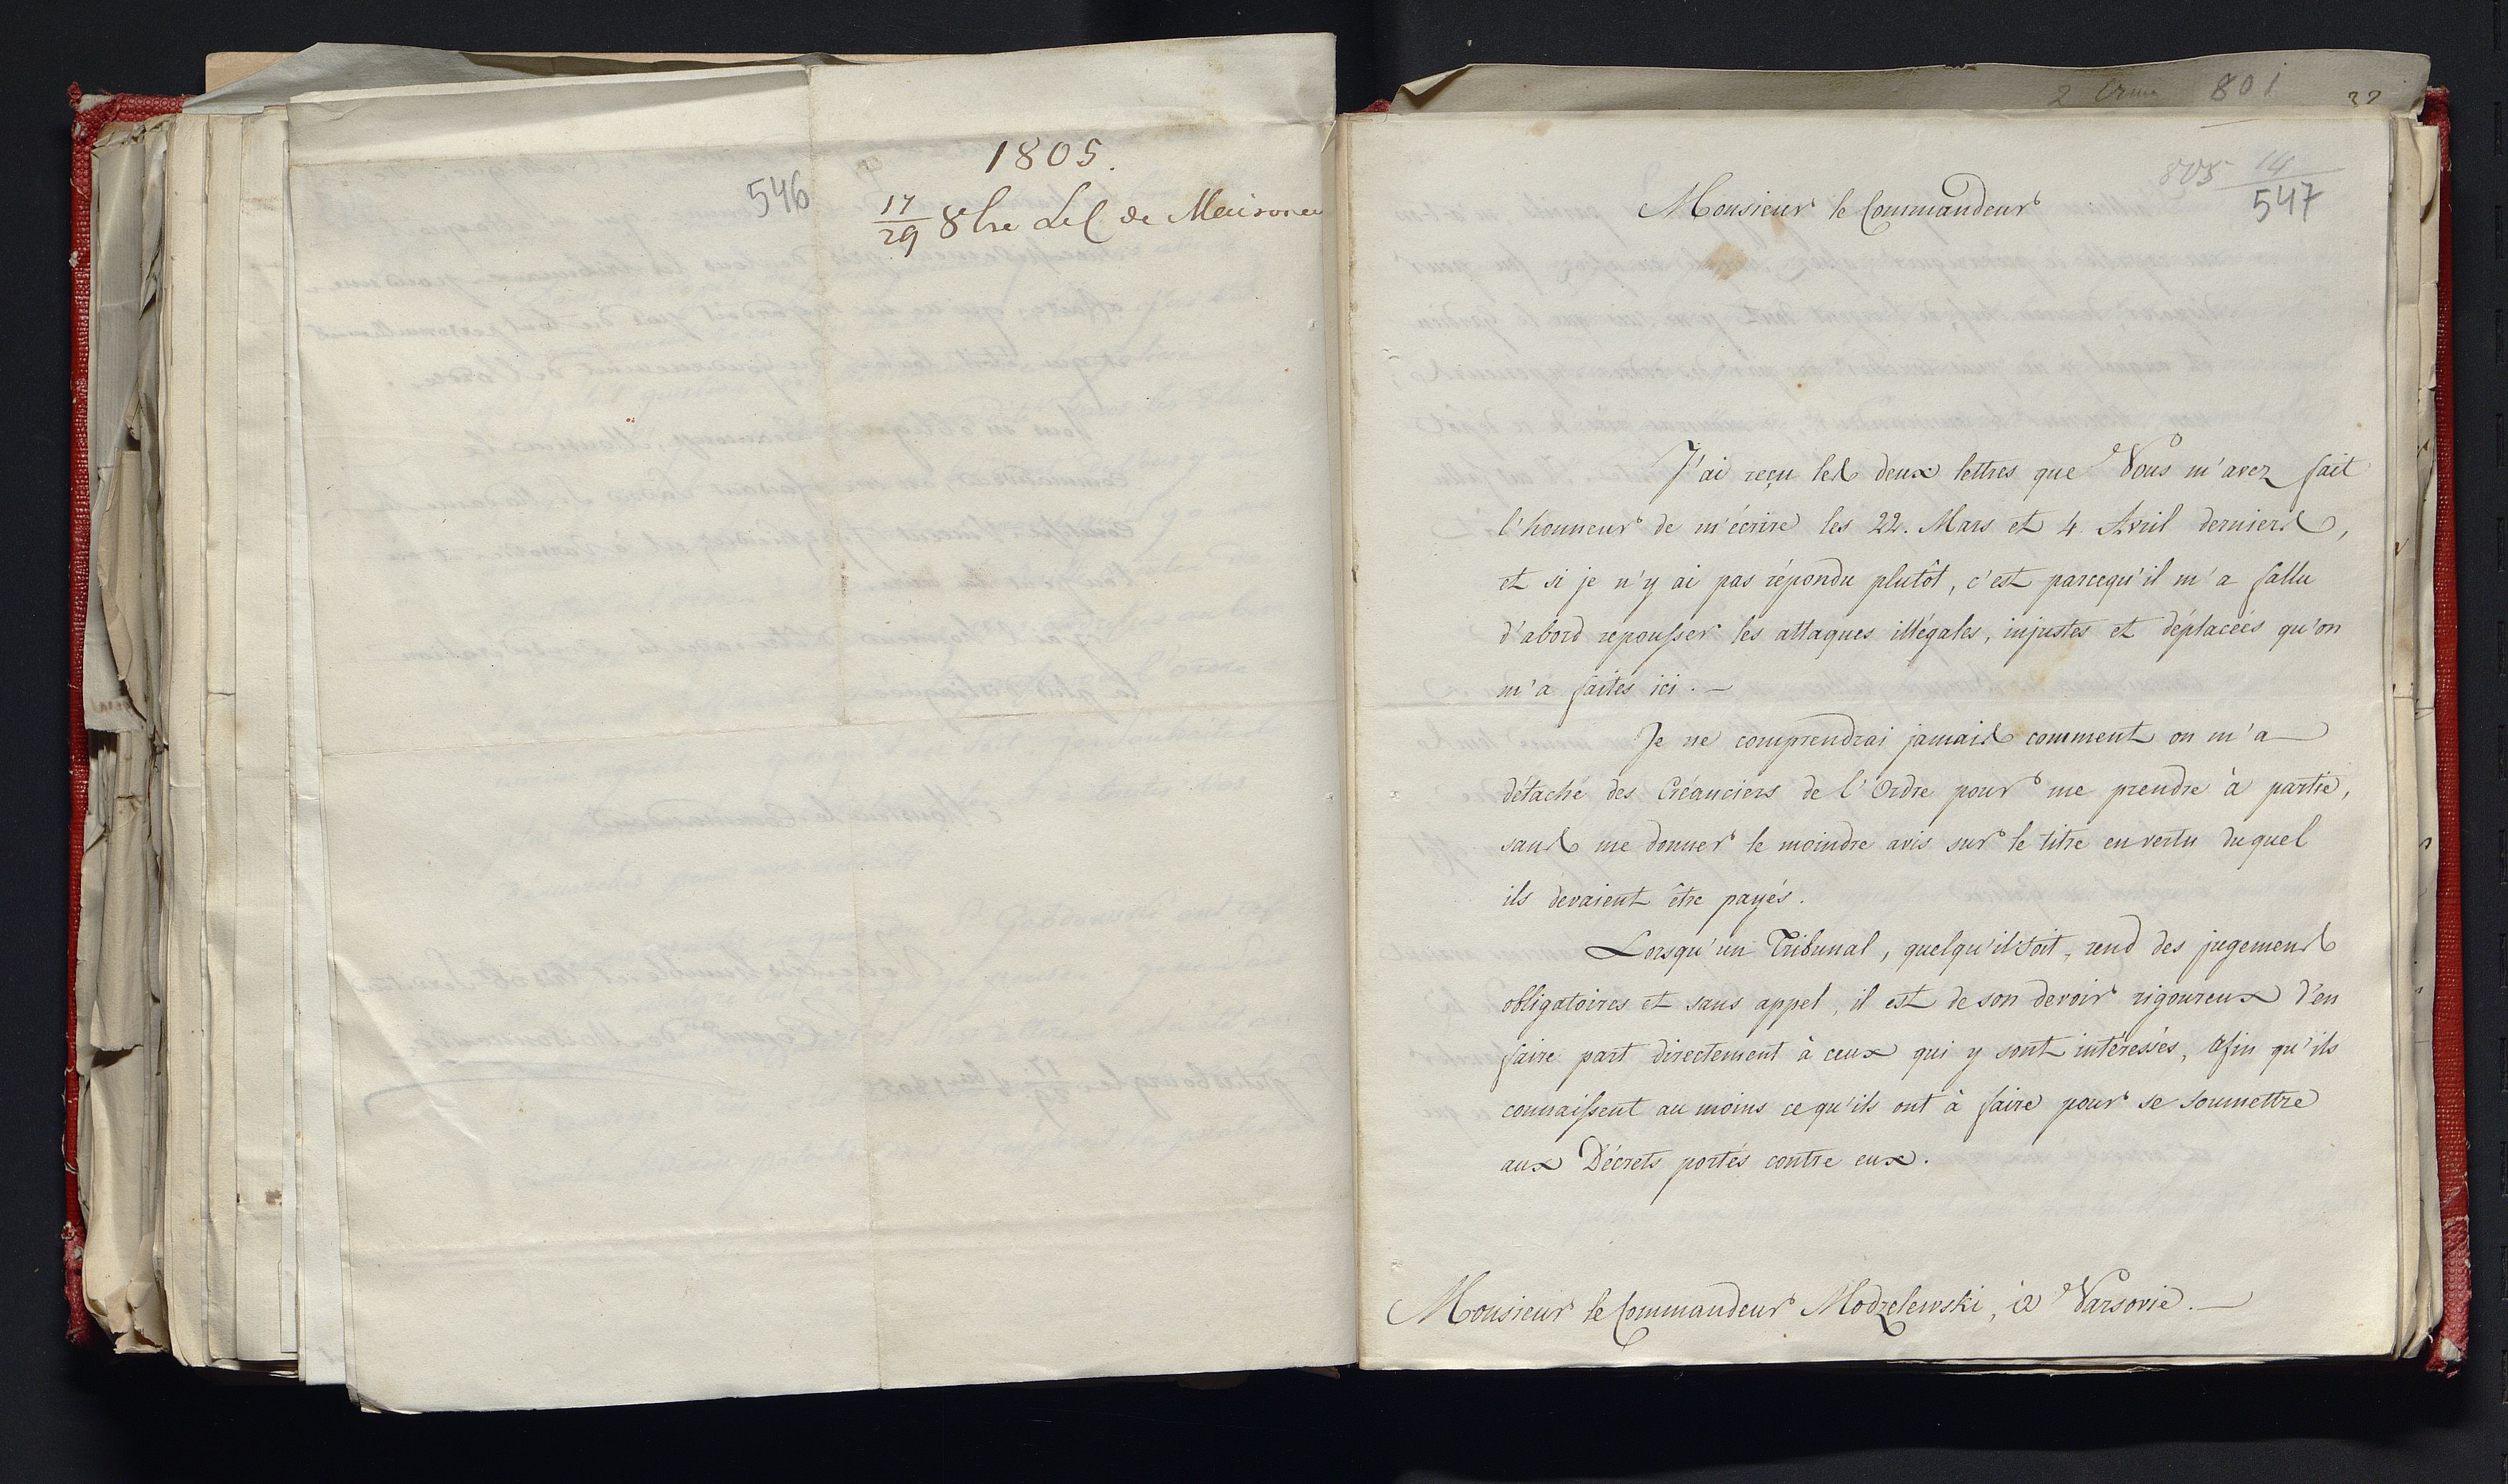 1805.
546
17/29 8bre Let de Maisoneu
801
32
805 14
547
Monsieur le Commandeur
J'ai reçu les deux lettres que Vous m'avez fait
l'honneur de m'écrire les 22. Mars et 4 Avril derniers,
et si je n'y ai pas répondu plutôt, c'est parcequ'il m'a fallu
d'abord repousser les attaques illégales, injustes et déplacées qu'on
m'a faites ici. —
Je ne comprendrai jamais comment on m'a
détaché des Créanciers de l'Ordre pour me prendre à partie,
sans me donner le moindre avis sur le titre en vertu duquel
ils devaient être payés.
Lorsqu'un Tribunal, quelqu'il soit, rend des jugemens
obligatoires et sans appel, il est de son devoir rigoureux d'en
faire part directement à ceux qui y sont intéressés, afin qu'ils
connaissent au moins ce qu'ils ont à faire pour se soumettre
aux Décrets portés contre eux.
Monsieur le Commandeur Modzelewski, à Varsovie. —